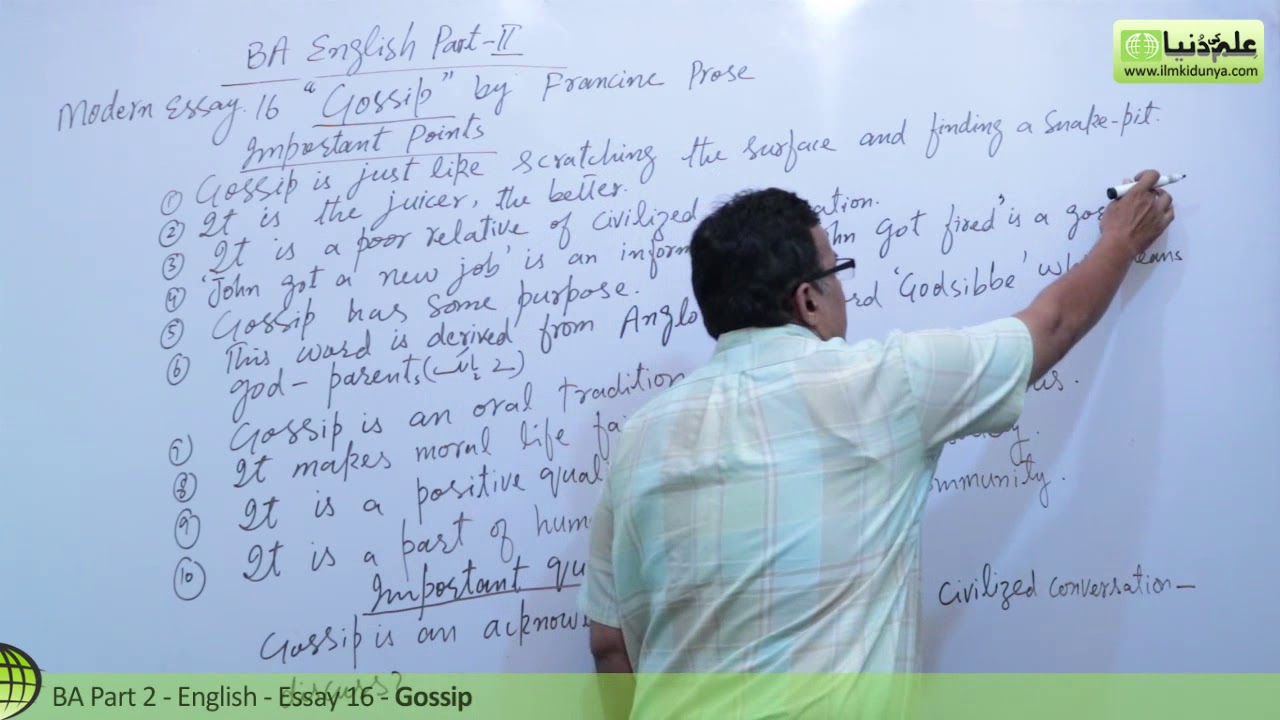 علم کی دُنیا
www.ilmkidunya.com
BA English Part-II
Modern Essay. 16 "Gossip" by Francine Prose
Important Points
① Gossip is just like scratching the surface and finding a snake-pit.
② It is the juicer, the better.
③ It is a poor relative of civilized
④ 'John got a new job' is an got fired" is a
⑤ Gossip has some purpose.
⑥ This word is derived from Anglo 'Godsibbe'
god-parents
⑦ Gossip is an oral tradition us.
⑧ It makes moral life
⑨ It is a positive
⑩ It is a part of
Important
Gossip is an civilized conversation-
discuss?
BA Part 2 - English - Essay 16 - Gossip